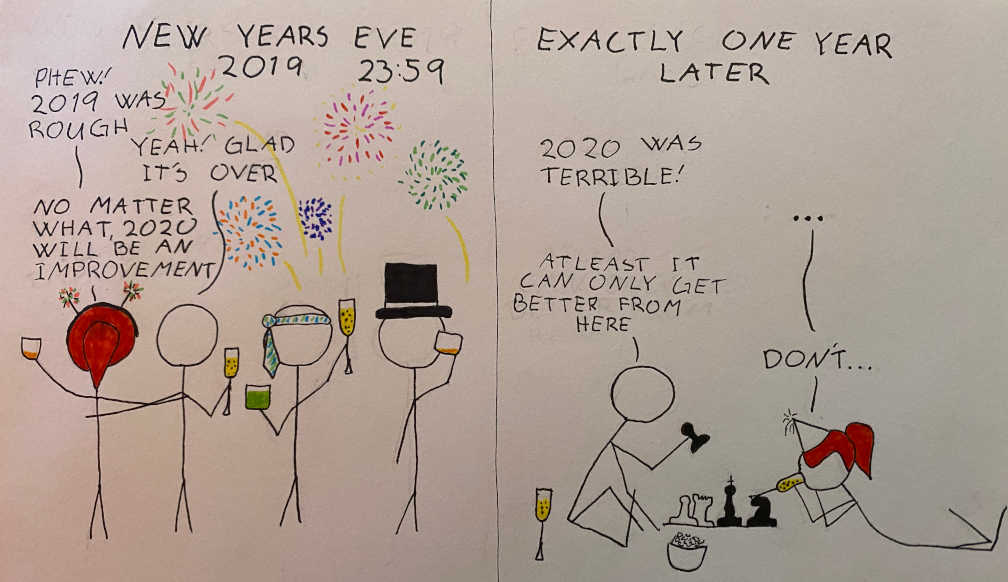 NEW YEARS EVE
2019 23:59
PHEW!
2019 WAS
ROUGH
YEAH! GLAD
IT'S OVER
NO MATTER
WHAT, 2020
WILL BE AN
IMPROVEMENT
EXACTLY ONE YEAR
LATER
2020 WAS
TERRIBLE!
...
ATLEAST IT
CAN ONLY GET
BETTER FROM
HERE
DON'T...